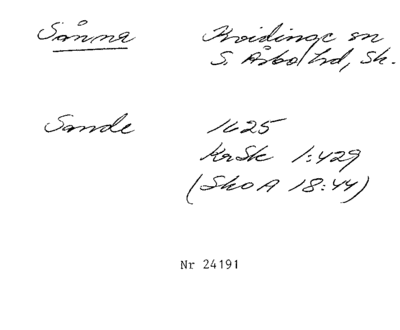 Sånna Kvidinge sn
S. Åsbo hd, Sk.
Sande 1625
KrSk 1:429
(SkoA 18:44)
Nr 24191